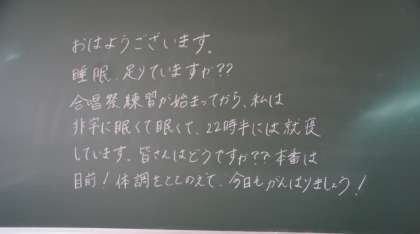 おはようございます。
睡眠、足りていますか??
合唱祭練習が始まってから、私は
非常に眠くて眠くて、22時半には就寝
しています。皆さんはどうですか??本番は
目前!体調をととのえて、今日もがんばりましょう!